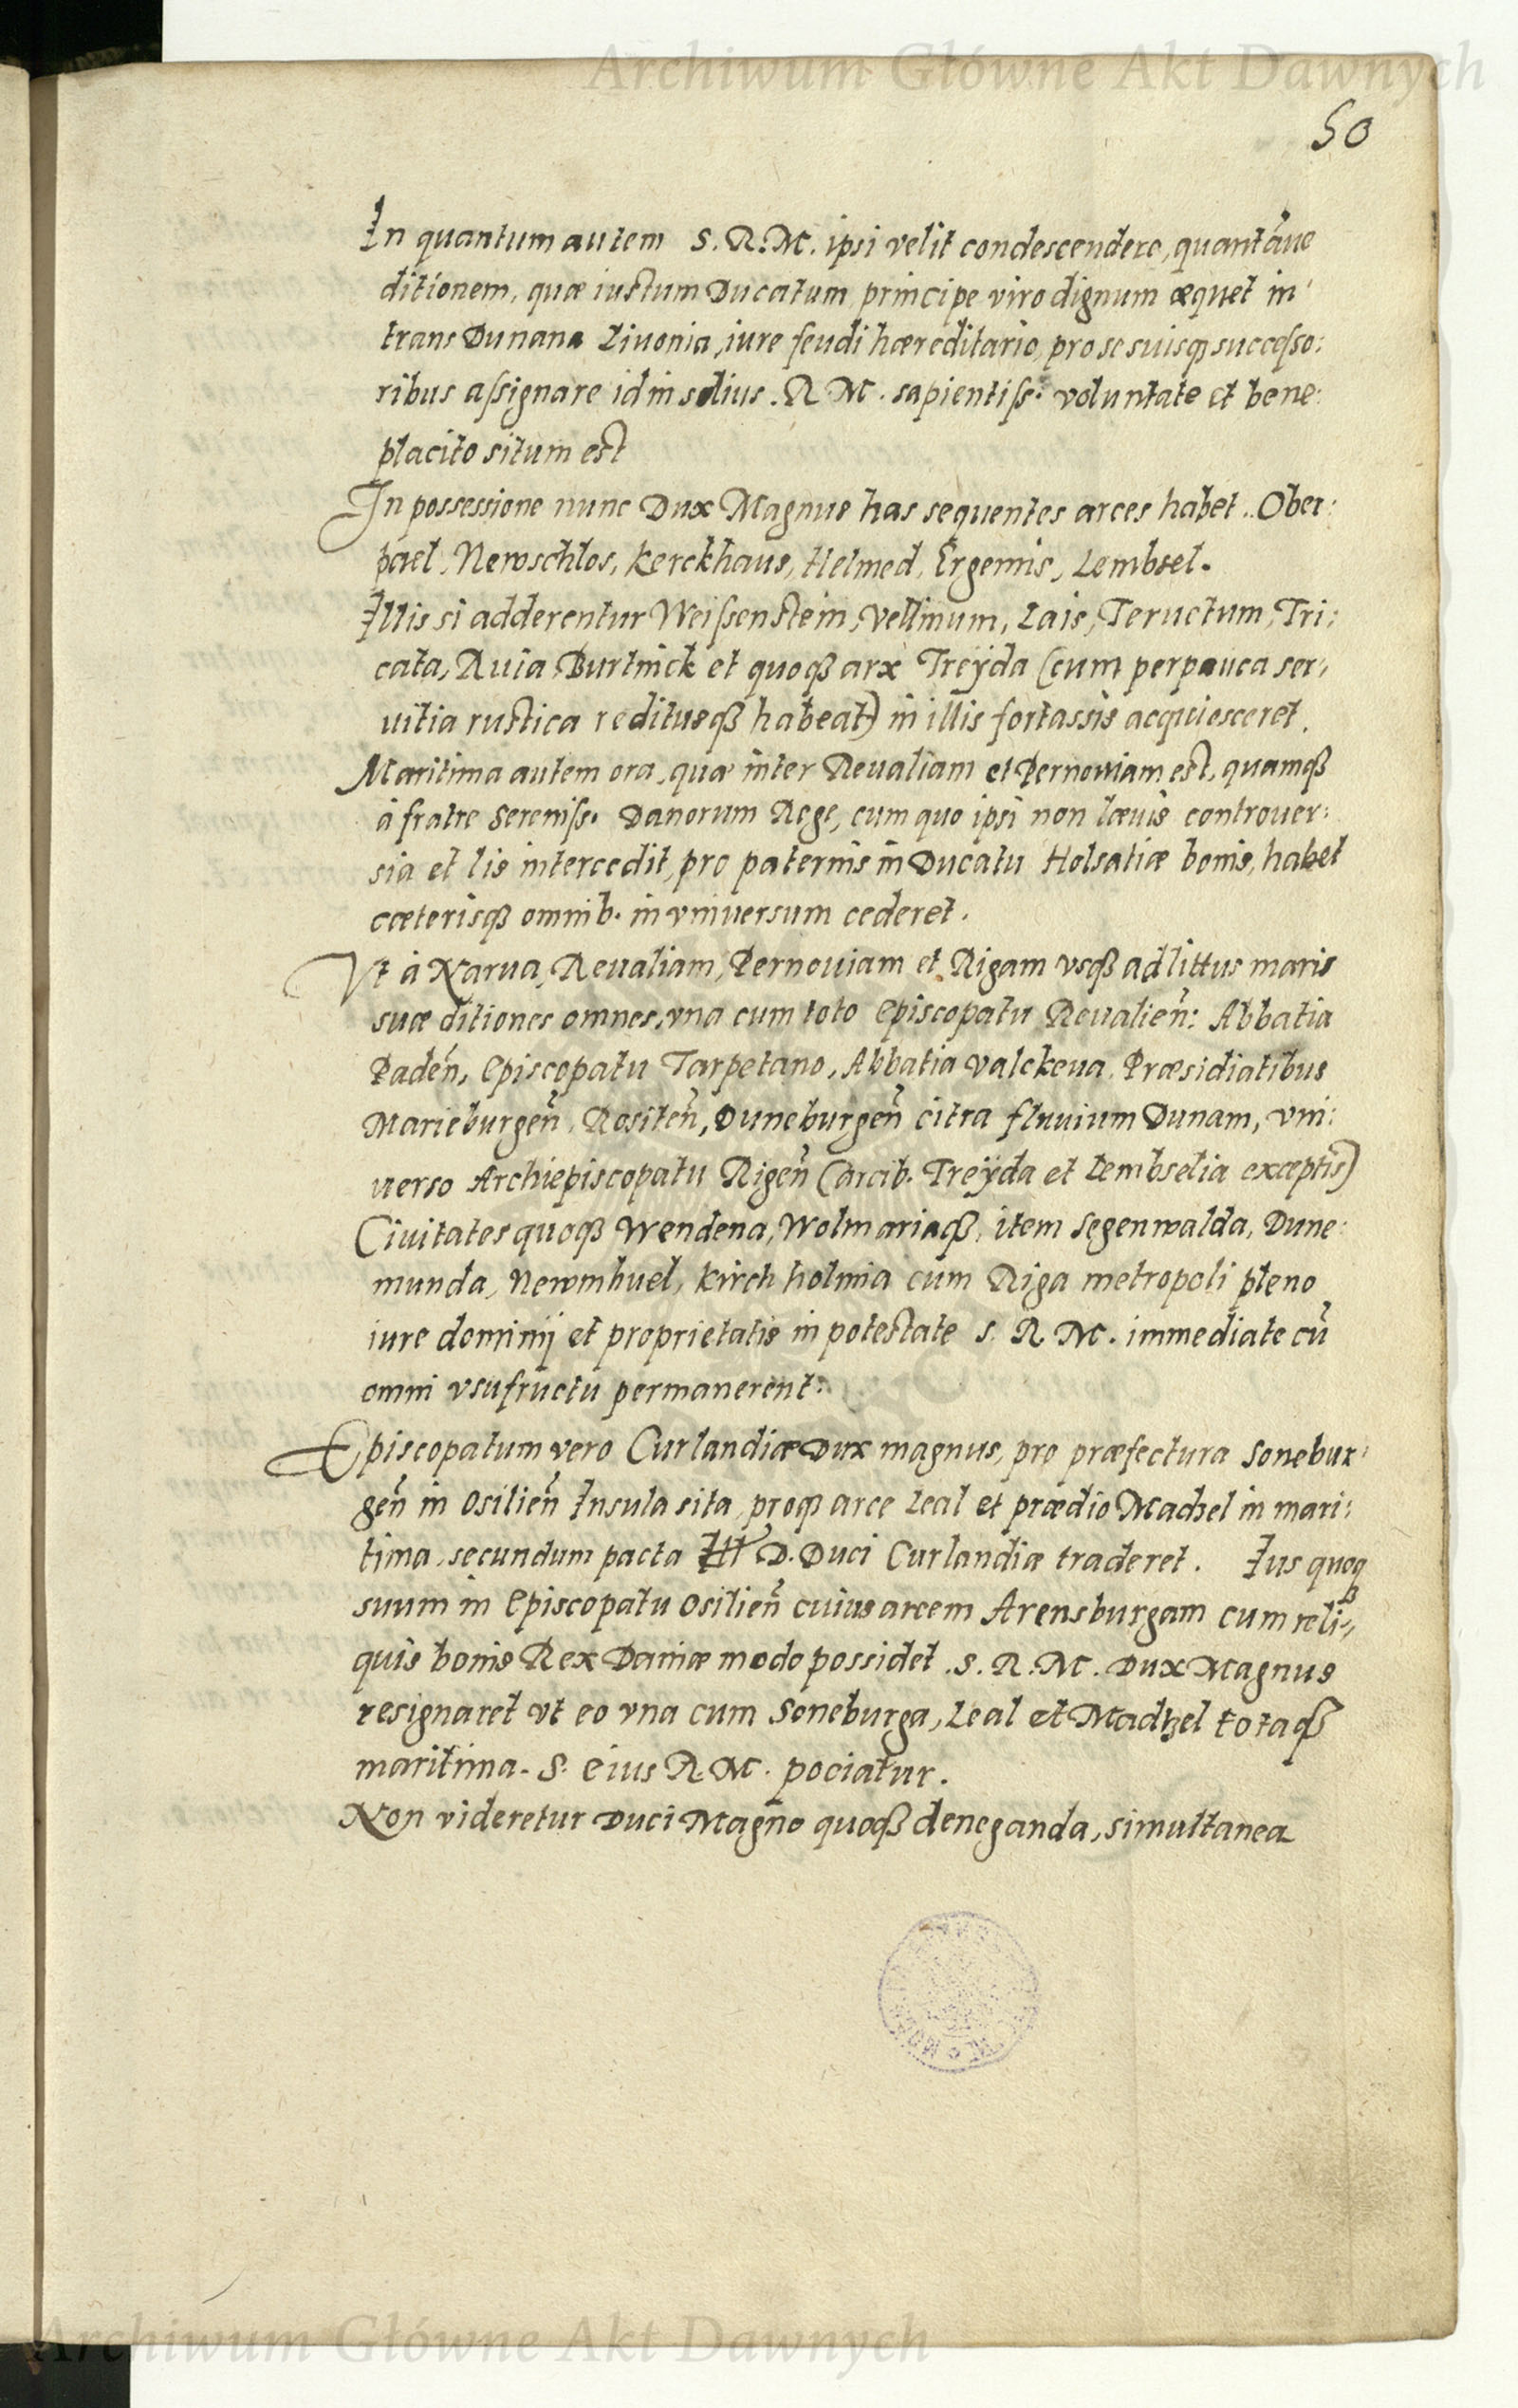 Archiwum Główne Akt Dawnych
50
In quantum autem S. R. M. ipsi velit condescendere, quantáue
ditionem, quæ iustum Ducatum principe viro dignum æquet in
trans Dunana Liuonia, iure feudi hæreditario, pro se suisq successo:
ribus assignare id in solius . R M . sapientiss. voluntate et bene:
placito situm est
In possessione nunc Dux Magnus has sequentes arces habet . Ober:
pael, Newschlos, Kerckhaus, Helmed, Ergemis, Lembsel.
Illis si adderentur Weissenstein, Vellinum, Lais, Teructum, Tri:
cata, Ruia Burtnick et quoqß arx Treÿda (cum perpauca ser,
uitia rustica redituusqß habeat) in illis fortassis acquiesceret.
Maritima autem ora, quæ inter Reualiam et Pernouiam est, quamqß
à fratre Sereniss. Danorum Rege, cum quo ipsi non læuis controuer:
sia et lis intercedit, pro paternis in Ducatu Holsatiæ bonis, habet
cæterisqß omnib. in vniuersum cederet.
Vt à Narua, Reualiam, Pernouiam et Rigam vsqß ad littus maris
suæ ditiones omnes, vna cum toto Episcopatu Reualien̄: Abbatia
Paden̄, Episcopatu Tarpetano, Abbatia Valckeua, Præsidiatibus
Marieburgen̄, Rositen̄, Duneburgen̄ citra fluuium Dunam, vni:
uerso Archiepiscopatu Rigen̄ (arcib. Treÿda et Lembselia exceptis)
Ciuitates quoqß Wendena, Wolmariaqß, item Segenwalda, Dune:
munda, Newmhuel, Kirch holmia cum Riga metropoli pleno
iure dominij et proprietatis in potestate S. R M. immediate cū
omni vsufructu permanerent:
Episcopatum vero Curlandiæ Dux magnus, pro præfectura Sonebur:
gen̄ in Osilien̄ Insula sita, proq arce Leal et prædio Madzel in mari:
tima, secundum pacta Ill D. Duci Curlandiæ traderet. Ius quoqß
suum in Episcopatu Osilien̄ cuius arcem Arensburgam cum reli:,
quis bonis Rex Daniæ modo possidet . S. R. M. Dux Magnus
resignaret vt eo vna cum Soneburga, Leal et Madtzel totaqß
maritima. S. Eius R. M. pociatur.
Non videretur Duci Magno quoqß deneganda, simultanea
Archiwum Główne Akt Dawnych